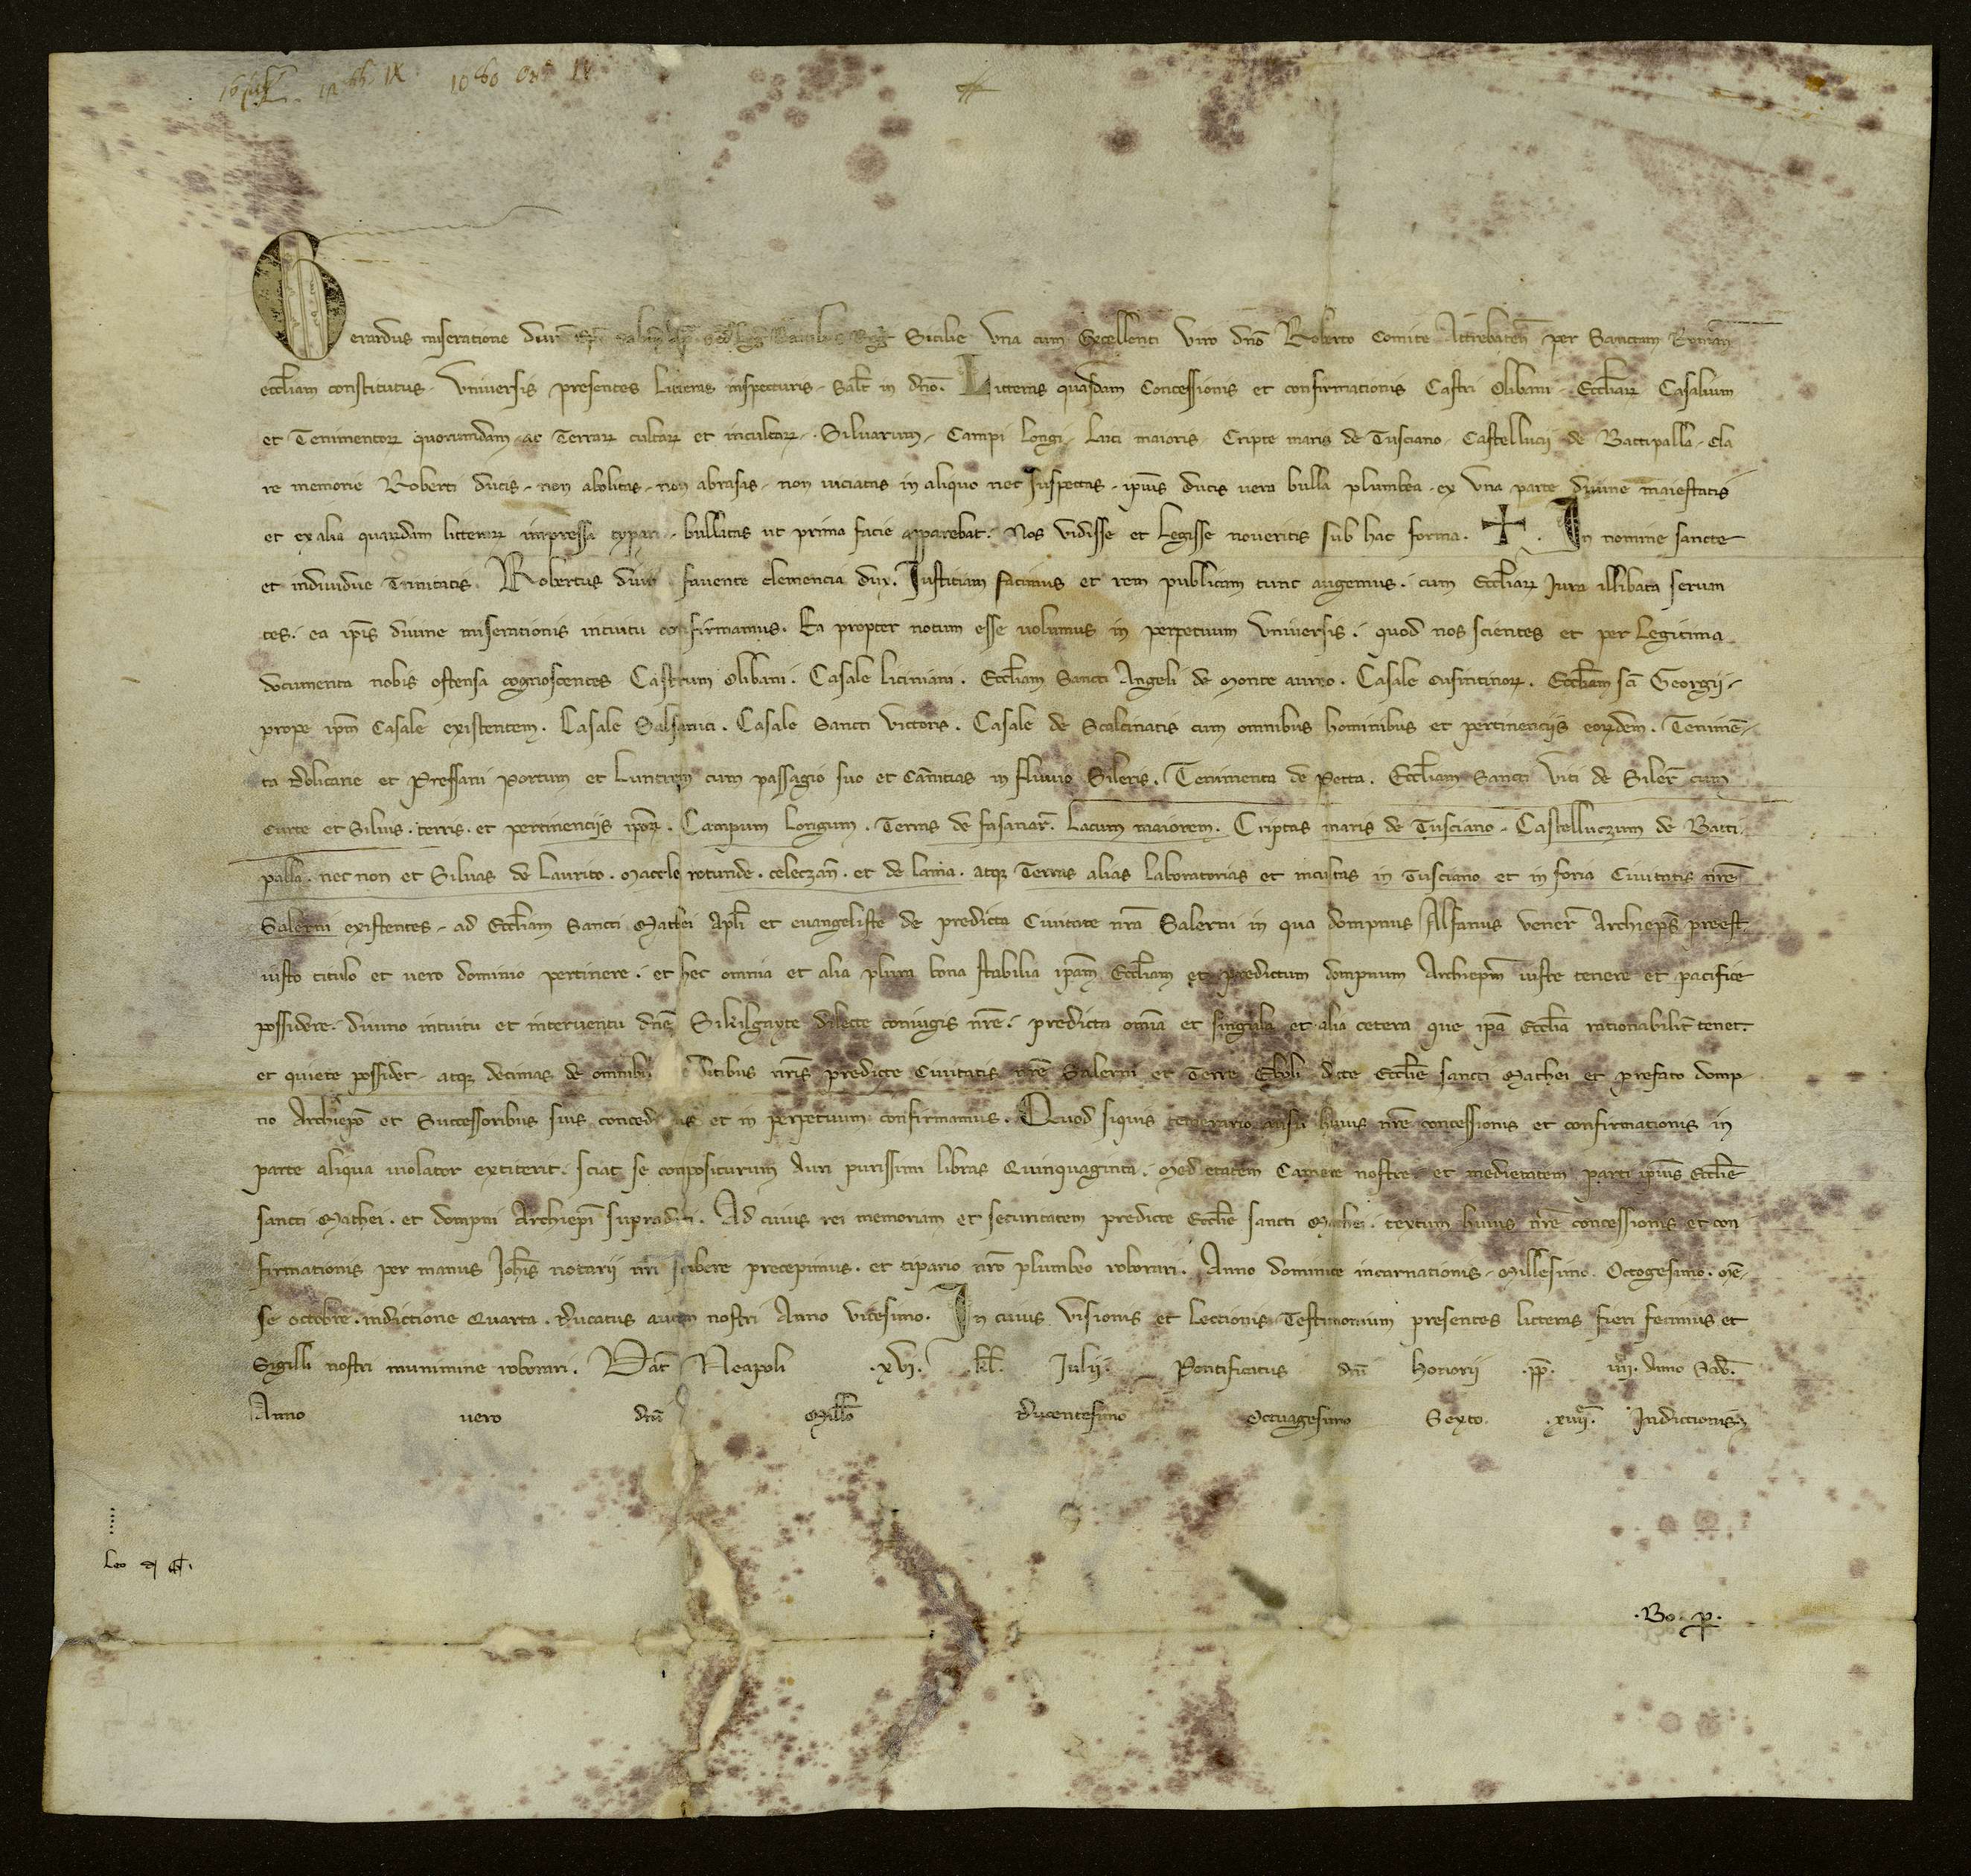 Gerardus miseratione diuīa Epc̄ Sabin̄ Sicilie Vna cum Excellenti Viro dn̄o Roberto Comite Attrebaten̄ per Sanctam Romān
eccl̄iam constitutus. Vniuersis presentes Litteras inspecturis. Salt̄ in dn̄o. Litteras quasdam Concessionis et confirmationis Castri Olibani. Eccl̄iaꝝ Casalium
et Tenimentoꝝ quorumdam. ac Terraꝝ cultaꝝ et incultaꝝ. Siluarum. Campi Longi. Laci maioris. Cripte maris de Tusciano. Castellucii de Battipalla. Cla
re memorie Roberti ducis. non abolitas. non abrasas. non uiciatas in aliquo nec Suspectas. ip̄ius ducis uera bulla plumbea. ex Vna parte diuine maiestatis
et ex alia quarūdam litteraꝝ impressa typari. bullatas ut prima facie apparebat. Nos Vidisse et Legisse noueritis sub hac forma. ✝. In nomine sancte
et indiuidue Trinitatis. Robertus diui fauente clemencia dux. Iustitiam facimus et rem publicam tunc augemus. cum Eccl̄iaꝝ Iura illibata seruan
tes. ea ip̄is diuine miserationis intuitu confirmamus. Ea propter notum esse uolumus in perpetuum Vniuersis. quod nos scientes et per Legitima
documenta nobis ostensa cognoscentes Castrum Olibani. Casale Liciniani. Eccl̄iam Sancti Angeli de Monte aureo. Casale. Eccl̄iam sc̄i Georgii.
prope ip̄m Casale existentem. Casale Salsanici. Casale Sancti Victoris. Casale de Scalcinatis cum omnibus hominibus et pertinenciis eoꝝdem. Tenimē
ta et Pressani Portum et Luntrem cum passagio suo et in fluuio Sileris. Tenimenta de Petta. Eccl̄iam Sancti Viti de Siler̄ cum
curte et Siluis. terris. et pertinenciis ip̄oꝝ. Campum Longum. Terras de fasanar̄. Lacum maiorem. Criptas maris de Tusciano. Castelluczum de Batti
palla. nec non et Siluas de Laurito. Maccle rotunde. celeczan̄. et de Lama. atqꝫ Terras alias Laboratorias et incultas in Tusciano et in foria Ciuitatis nr̄e
Salerni existentes. ad Eccl̄iam Sancti Mathei Apl̄i et euangeliste de predicta Ciuitate nr̄a Salerni in qua dompnus Alfanus vener̄ Archiep̄s preest
iusto titulo et uero dominio pertinere. et hec omnia et alia plura bona stabilia ip̄am Eccl̄iam et predictum dompnum Archiep̄m iuste tenere et pacifice
possidere. diuino intuitu et interuentu dn̄e Sikilgayte dilecte coniugis nr̄e. predicta om̄ia et singula et alia cetera que ip̄a Eccl̄ia rationabilit̄ tenet.
et quiete possidet. atqꝫ decimas de omnibus nr̄is predicte Ciuitatis nr̄e Salerni et Terre Eboli dicte Eccl̄ie sancti Mathei et prefato domp
no Archiep̄o et Successoribus suis concedimus et in perpetuum confirmamus. Quod siquis temerario ausu huius nr̄e concessionis et confirmationis in
parte aliqua uiolator extiterit. sciat se compositurum Auri purissimi libras Quinquaginta. Medietatem Camere nostre et medietatem parti ip̄ius Eccl̄ie
sancti Mathei. et dompni Archiep̄i supradicti. Ad cuius rei memoriam et securitatem predicte Eccl̄ie sancti Mathei. textum huius nr̄e concessionis et con
firmationis per manus Ioh̄is notarii nr̄i scribere precepimus. et tipario nr̄o plumbeo roborari. Anno dominice incarnationis. Millesimo. Octogesimo. mē
se octobre. indictione Quarta. Ducatus autem nostri Anno Vicesimo. In cuius Visionis et Lectionis Testimonium presentes litteras fieri fecimus et
Sigilli nostri munimine roborari. Dat̄ Neapoli .xvi. kl̄. Iulii. Pontificatus dn̄i Honorii .pp̄. iiii. Anno Scd̄o.
Anno uero dn̄i Mill̄o Ducentesimo Octuagesimo Sexto .xiiii. Indictionis
Leo
.Bo. p̱.